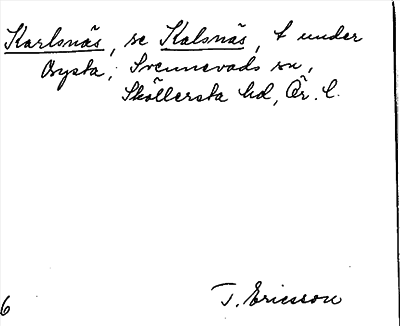 Karlsnäs, se Kalsnäs, t under
Bysta, Svennevads sn,
Sköllersta hd, Ör. l.
T. Ericsson
6